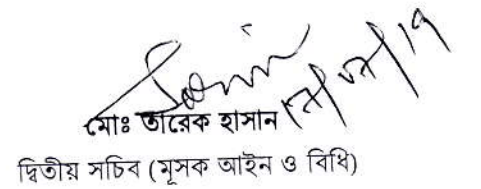 মোঃ তারেক হাসান
দ্বিতীয় সচিব (মূসক আইন ও বিধি)